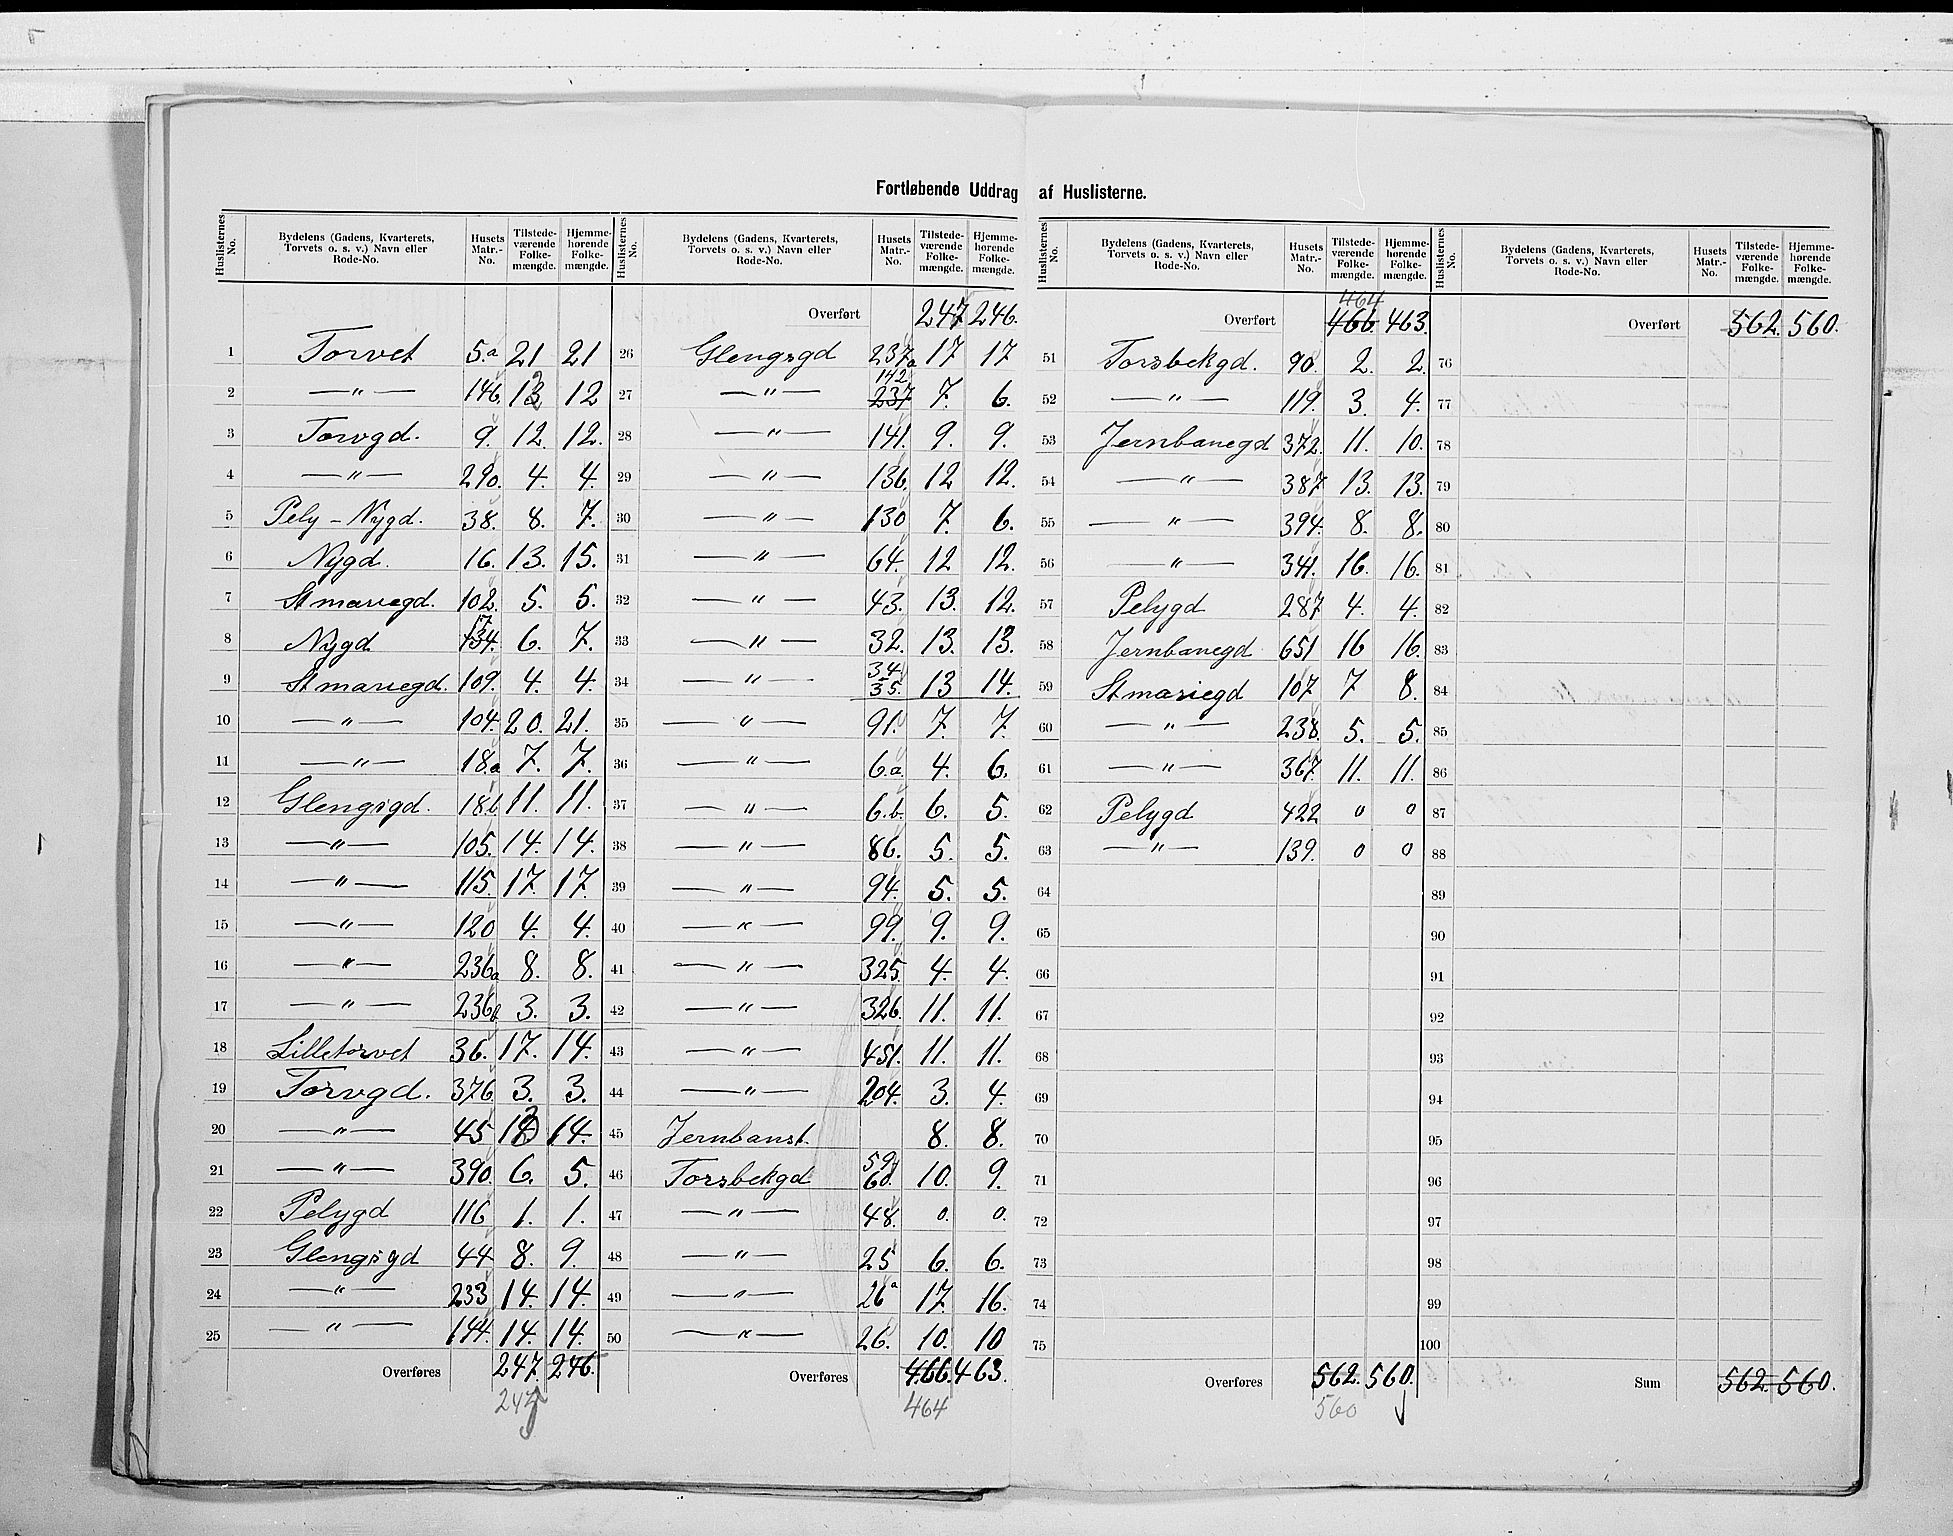 Fortløbende Uddrag af Huslisterne.
Huslisternes No. | Bydelens (Gadens, Kvarterets, Torvets o. s. v.) Navn eller Rode-No. | Husets Matr.-No. | Tilstedeværende Folkemængde. | Hjemmehørende Folkemængde.
1 Torvet 5.a 21 21
2 —〃— 146. 12 12
3 Torvgd. 9. 12. 12.
4 —〃— 290. 4. 4.
5 Pely-Nygd. 38. 8. 7.
6 Nygd. 16. 13. 15.
7 St mariegd. 102. 5. 5.
8 Nygd 6. 7.
9 St mariegd. 109. 4. 4.
10 —〃— 104. 20. 21.
11 —〃— 18.a 7. 7.
12 Glengsgd. 18.b 11. 11.
13 —〃— 105. 14. 14.
14 —〃— 115. 17. 17.
15 —〃— 120 4. 4.
16 —〃— 236a 8. 8.
17 —〃— 236b 3. 3.
18 Lilletorvet 36. 17. 14.
19 Torvgd. 376. 3. 3.
20 —〃— 45 14.
21 —〃— 390. 6. 5.
22 Pelygd 116 1. 1.
23 Glengsgd 44 8. 9.
24 —〃— 233 14. 14.
25 —〃— 144. 14. 14.
Overføres 247. 246.
Huslisternes No. | Bydelens (Gadens, Kvarterets, Torvets o. s. v.) Navn eller Rode-No. | Husets Matr.-No. | Tilstedeværende Folkemængde. | Hjemmehørende Folkemængde.
Overført 247 246.
26 Glengsgd 237a 17 17
27 —〃— 142 237 7. 6.
28 —〃— 141. 9. 9.
29 —〃— 136. 12 12.
30 —〃— 130 7. 6.
31 —〃— 64. 12 12.
32 —〃— 43. 13. 12.
33 —〃— 32. 13. 13.
34 —〃— 34 35. 13 14.
35 —〃— 91. 7. 7.
36 —〃— 6.a 4. 6.
37 —〃— 6.b. 6. 5.
38 —〃— 86. 5. 5.
39 —〃— 94. 5. 5.
40 —〃— 99. 9. 9.
41 —〃— 325. 4. 4.
42 —〃— 326. 11. 11.
43 —〃— 451. 11. 11.
44 —〃— 204. 3. 4.
45 Jernbanst. 8. 8.
46 Torsbekgd 59 60. 10. 9.
47 —〃— 48. 0. 0.
48 —〃— 25 6. 6.
49 —〃— 26a 17. 16.
50 —〃— 26. 10. 10
Overføres 466. 463.
464
Huslisternes No. | Bydelens (Gadens, Kvarterets, Torvets o. s. v.) Navn eller Rode-No. | Husets Matr.-No. | Tilstedeværende Folkemængde. | Hjemmehørende Folkemængde.
464
Overført 466 463.
51 Torsbekgd. 90. 2. 2.
52 —〃— 119. 3. 4.
53 Jernbanegd 372. 11. 10.
54 —〃— 387 13. 13.
55 —〃— 394. 8. 8.
56 —〃— 341. 16. 16.
57 Pelygd 287 4. 4.
58 Jernbanegd 651 16 16.
59 St mariegd 107 7 8.
60 —〃— 238. 5. 5.
61 —〃— 367. 11. 11.
62 Pelygd 422 0 0
63 —〃— 139. 0 0
64
65
66
67
68
69
70
71
72
73
74
75
Overføres 562. 560.
560
Huslisternes No. | Bydelens (Gadens, Kvarterets, Torvets o. s. v.) Navn eller Rode-No. | Husets Matr.-No. | Tilstedeværende Folkemængde. | Hjemmehørende Folkemængde.
Overført 562. 560.
76
77
78
79
80
81
82
83
84
85
86
87
88
89
90
91
92
93
94
95
96
97
98
99
100
Sum 562. 560.